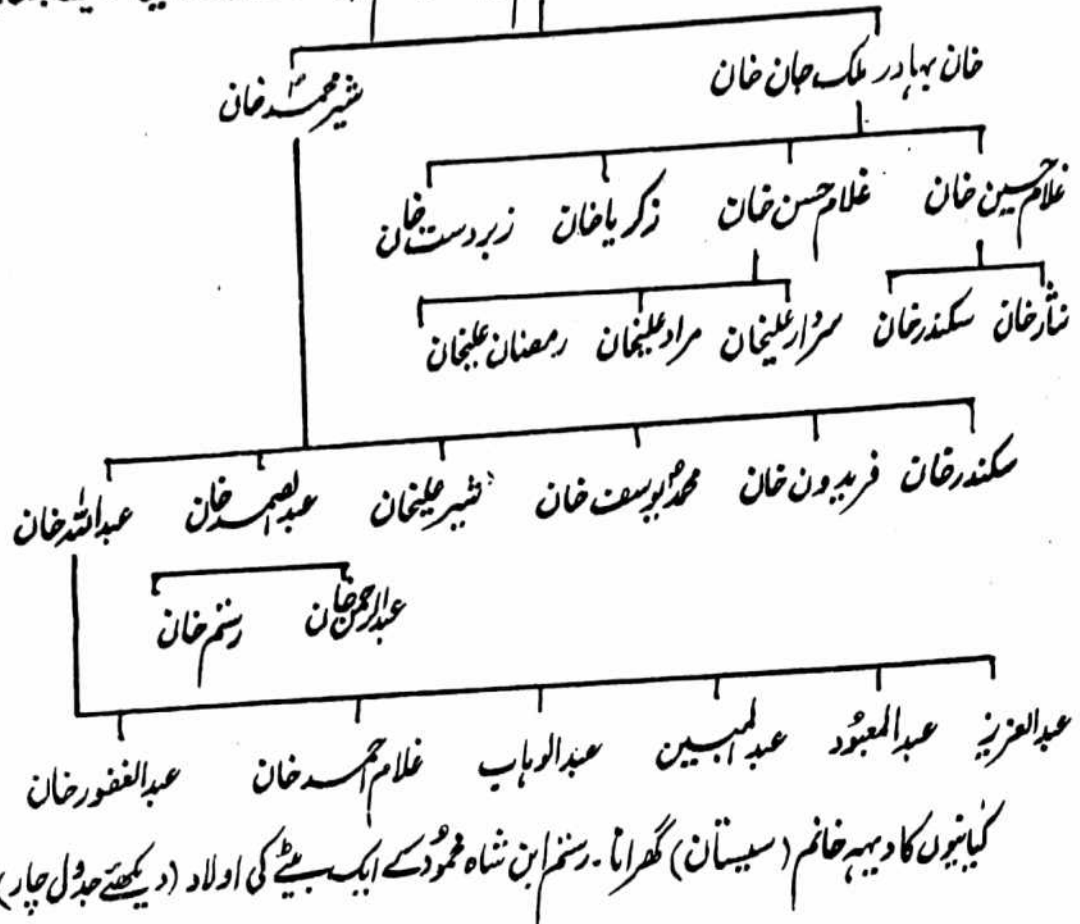 خان بہادر ملک جان خان شیر محمد خان
غلام حسین خان غلام حسن خان زکریا خان زبردست خان
نثار خان سکندر خان سردار علیخان مراد علیخان رمضان علیخان
سکندر خان فریدون خان محمد یوسف خان شیر علیخان عبدالصمد خان عبداللہ خان
عبدالرحمن خان رستم خان
عبدالعزیز عبدالمعبُود عبدالمبین عبدالوہاب غلام احمد خان عبدالغفور خان
کیانیوں کا دیہہ خانم (سیستان) گھرانا ۔ رستم ابن شاہ محمُود کے ایک بیٹے کی اولاد (دیکھئے جدول چار)